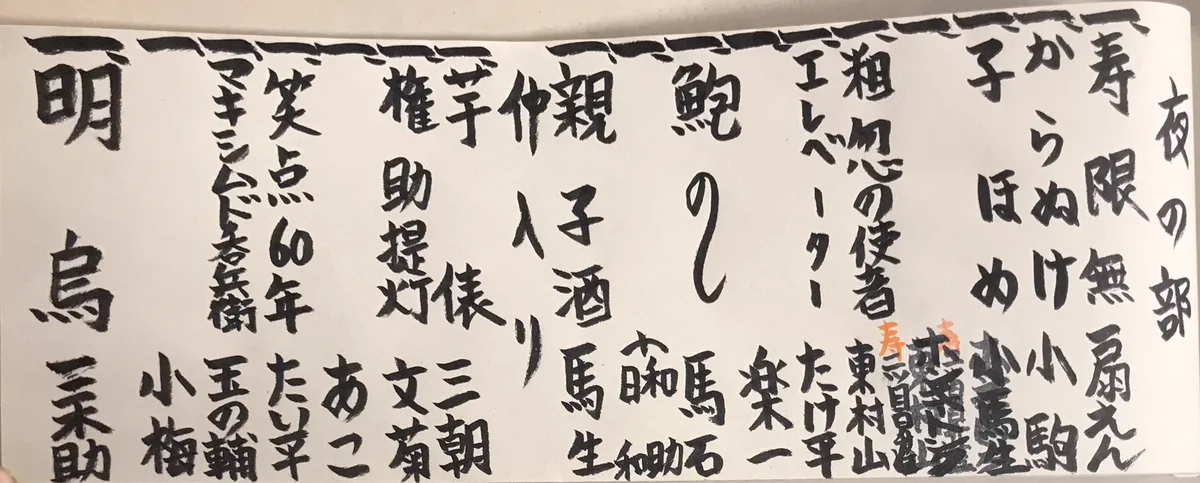 夜の部
一、寿限無 扇えん
一、からぬけ 小駒
一、子ほめ 小馬生
一、 寿
一、粗忽の使者 東村山
一、エレベーター たけ平
一、 楽一
一、鮑のし 馬石
一、 和助
一、親子酒 馬生
仲入り
一、芋俵 三朝
一、権助提灯 文菊
一、 あこ
一、笑点60年 たい平
一、マキシムド呑兵衛 玉の輔
一、 小梅
一、明烏 三木助